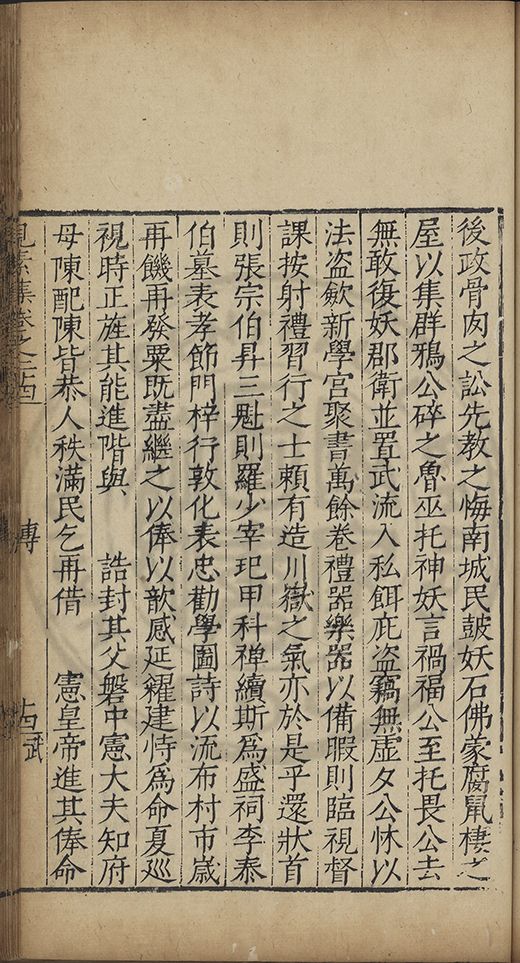 後政骨肉之訟先教之悔南城民鼓妖石佛蒙腐鼠棲之
屋以集群鴉公碎之魯巫托神妖言禍福公至托畏公去
無敢復妖郡衛並置武流入私餌庇盜竊無虛夕公怵以
法盗歛新學宮聚書萬餘卷禮器樂器以備暇則臨視督
課按射禮習行之士頼有造川嶽之氣亦於是乎還狀首
則張宗伯昇三魁則羅少宰玘甲科禅續斯爲盛祠李泰
伯墓表孝節門梓行敦化表忠勸學圖詩以流布村市嵗
再饑再發粟既盡繼之以俸以歉感延糴建恃爲命夏廵
視時正旌其能進階與　誥封其父磐中憲大夫知府
母陳配陳皆恭人秩滿民乞再借　憲皇帝進其俸命
見素集卷之二十四　傳　十四　武